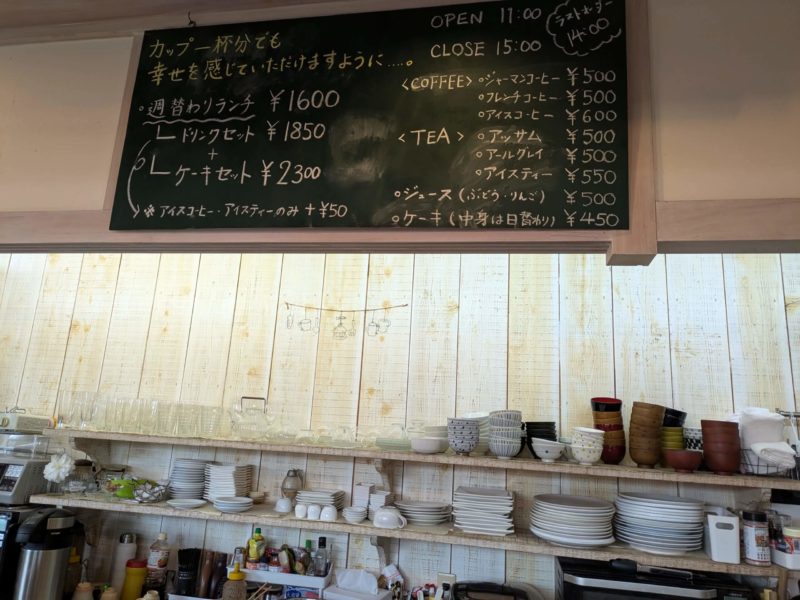 カップ一杯分でも
幸せを感じていただけますように……。
○週替わりランチ ¥1600
ドリンクセット ¥1850
+
ケーキセット ¥2300
※アイスコーヒー・アイスティーのみ+¥50
OPEN 11:00
CLOSE 15:00
ラストオーダー
14:00
<COFFEE> ○ジャーマンコーヒー ¥500
○フレンチコーヒー ¥500
○アイスコーヒー ¥600
<TEA> ○アッサム ¥500
○アールグレイ ¥500
○アイスティー ¥550
○ジュース(ぶどう・りんご) ¥500
○ケーキ(中身は日替わり) ¥450